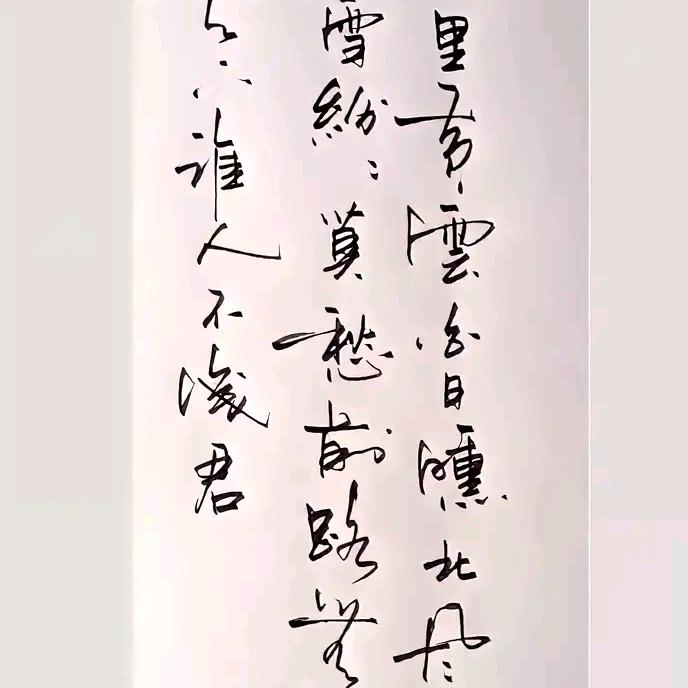 里黄雲白日曛北風
雪紛〻莫愁前路無
下誰人不識君